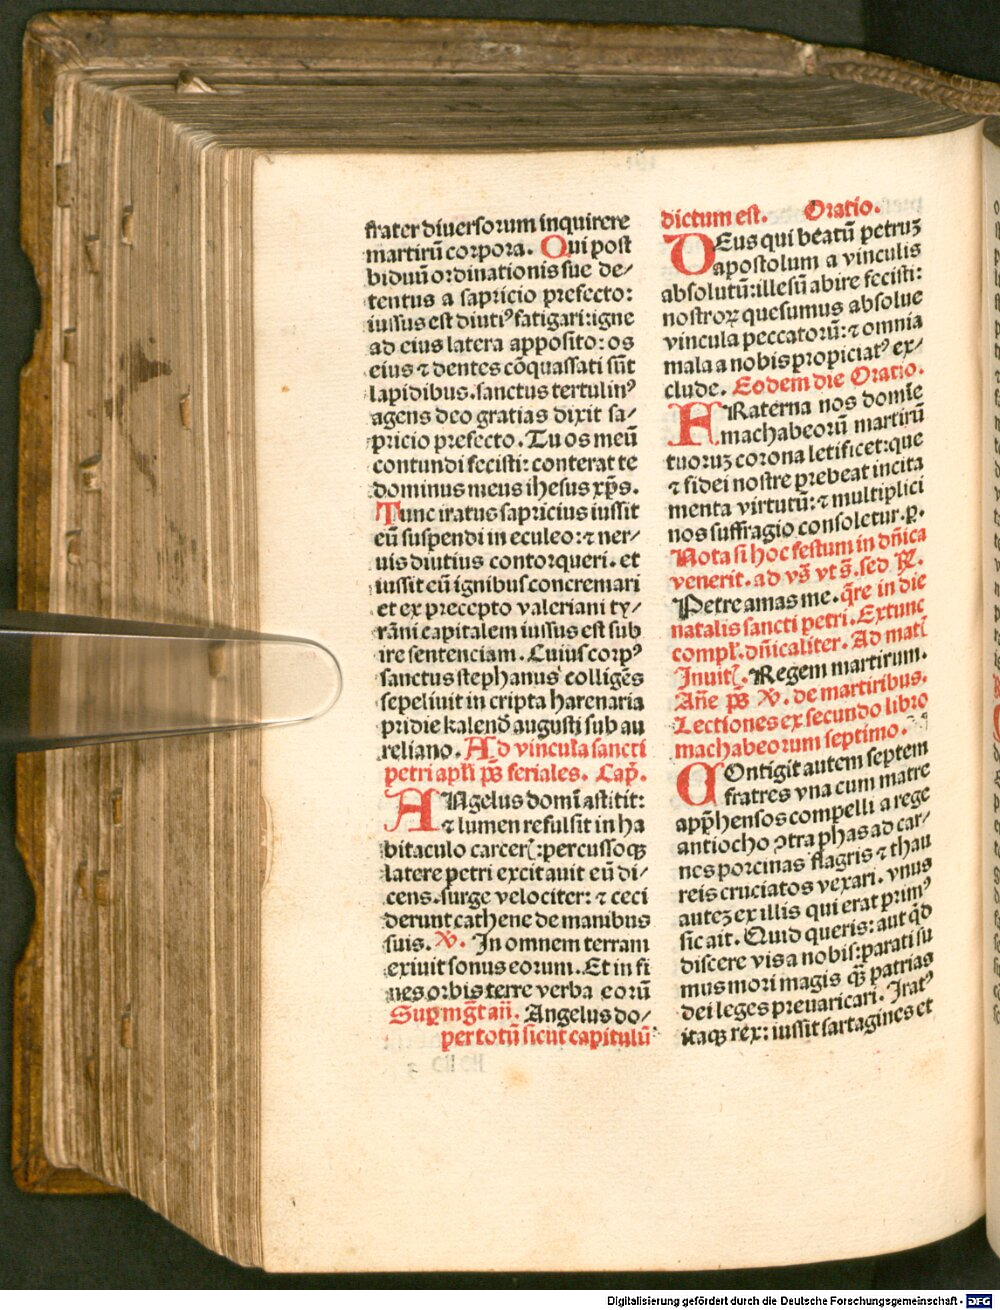 frater diuersorum inquirere
martirũ corpora. Qui post
biduũ ordinationis sue de⸗
tentus a sapricio prefecto:
iussus est diutiꝰ fatigari: igne
ad eius latera apposito: os
eius ⁊ dentes cõquassati sũt
lapidibus. sanctus tertulinꝰ
agens deo gratias dixit sa⸗
pricio prefecto. Tu os meũ
contundi fecisti: conterat te
dominus meus ihesus xp̃s.
Tunc iratus sapricius iussit
eũ suspendi in eculeo: ⁊ ner⸗
uis diutius contorqueri. et
iussit eũ ignibus concremari
et ex precepto valeriani ty⸗
rãni capitalem iussus est sub
ire sentenciam. Cuius corpꝰ
sanctus stephanus colligẽs
sepeliuit in cripta harenaria
pridie kalend̃ augusti sub au
reliano. Ad vincula sancti
petri apl̃i p̃s feriales. Cap̃.
ANgelus domĩ astitit:
⁊ lumen refulsit in ha
bitaculo carcerꝭ: percussoqꝫ
latere petri excitauit eũ di⸗
cens. surge velociter: ⁊ ceci
derunt cathene de manibus
suis. ℣. In omnem terram
exiuit sonus eorum. Et in fi
nes orbis terre verba eorũ
Suꝑ mg̃t añ. Angelus do⸗
per totũ sicut capitulũ
dictum est. Oratio.
DEus qui beatũ petruꝫ
apostolum a vinculis
absolutũ: illesũ abire fecisti:
nostroꝝ quesumus absolue
vincula peccatorũ: ⁊ omnia
mala a nobis propiciatꝰ ex⸗
clude. Eodem die Oratio.
FRaterna nos domĩe
machabeorũ martirũ
tuoruꝫ corona letificet: que
⁊ fidei nostre prebeat incita
menta virtutũ: ⁊ multiplici
nos suffragio consoletur. p̱.
Nota si hoc festum in dñica
venerit. ad vs̃ vt s̃. sed ℟.
Petre amas me. q̃re in die
natalis sancti petri. Extunc
compl̃. dñicaliter. Ad matꝭ
Inuitꝭ. Regem martirum.
Añe p̃s ℣. de martiribus.
Lectiones ex secundo libro
machabeorum septimo.
COntigit autem septem
fratres vna cum matre
app̃hensos compelli a rege
antiocho ↄtra phas ad car⸗
nes porcinas flagris ⁊ thau
reis cruciatos vexari. vnus
auteꝫ ex illis qui erat primꝰ
sic ait. Quid queris: aut qd̃
discere vis a nobis: parati su
mus mori magis qꝫ̃ patrias
dei leges preuaricari. Iratꝰ
itaqꝫ rex: iussit sartagines et
Digitalisierung gefördert durch die Deutsche Forschungsgemeinschaft - DFG